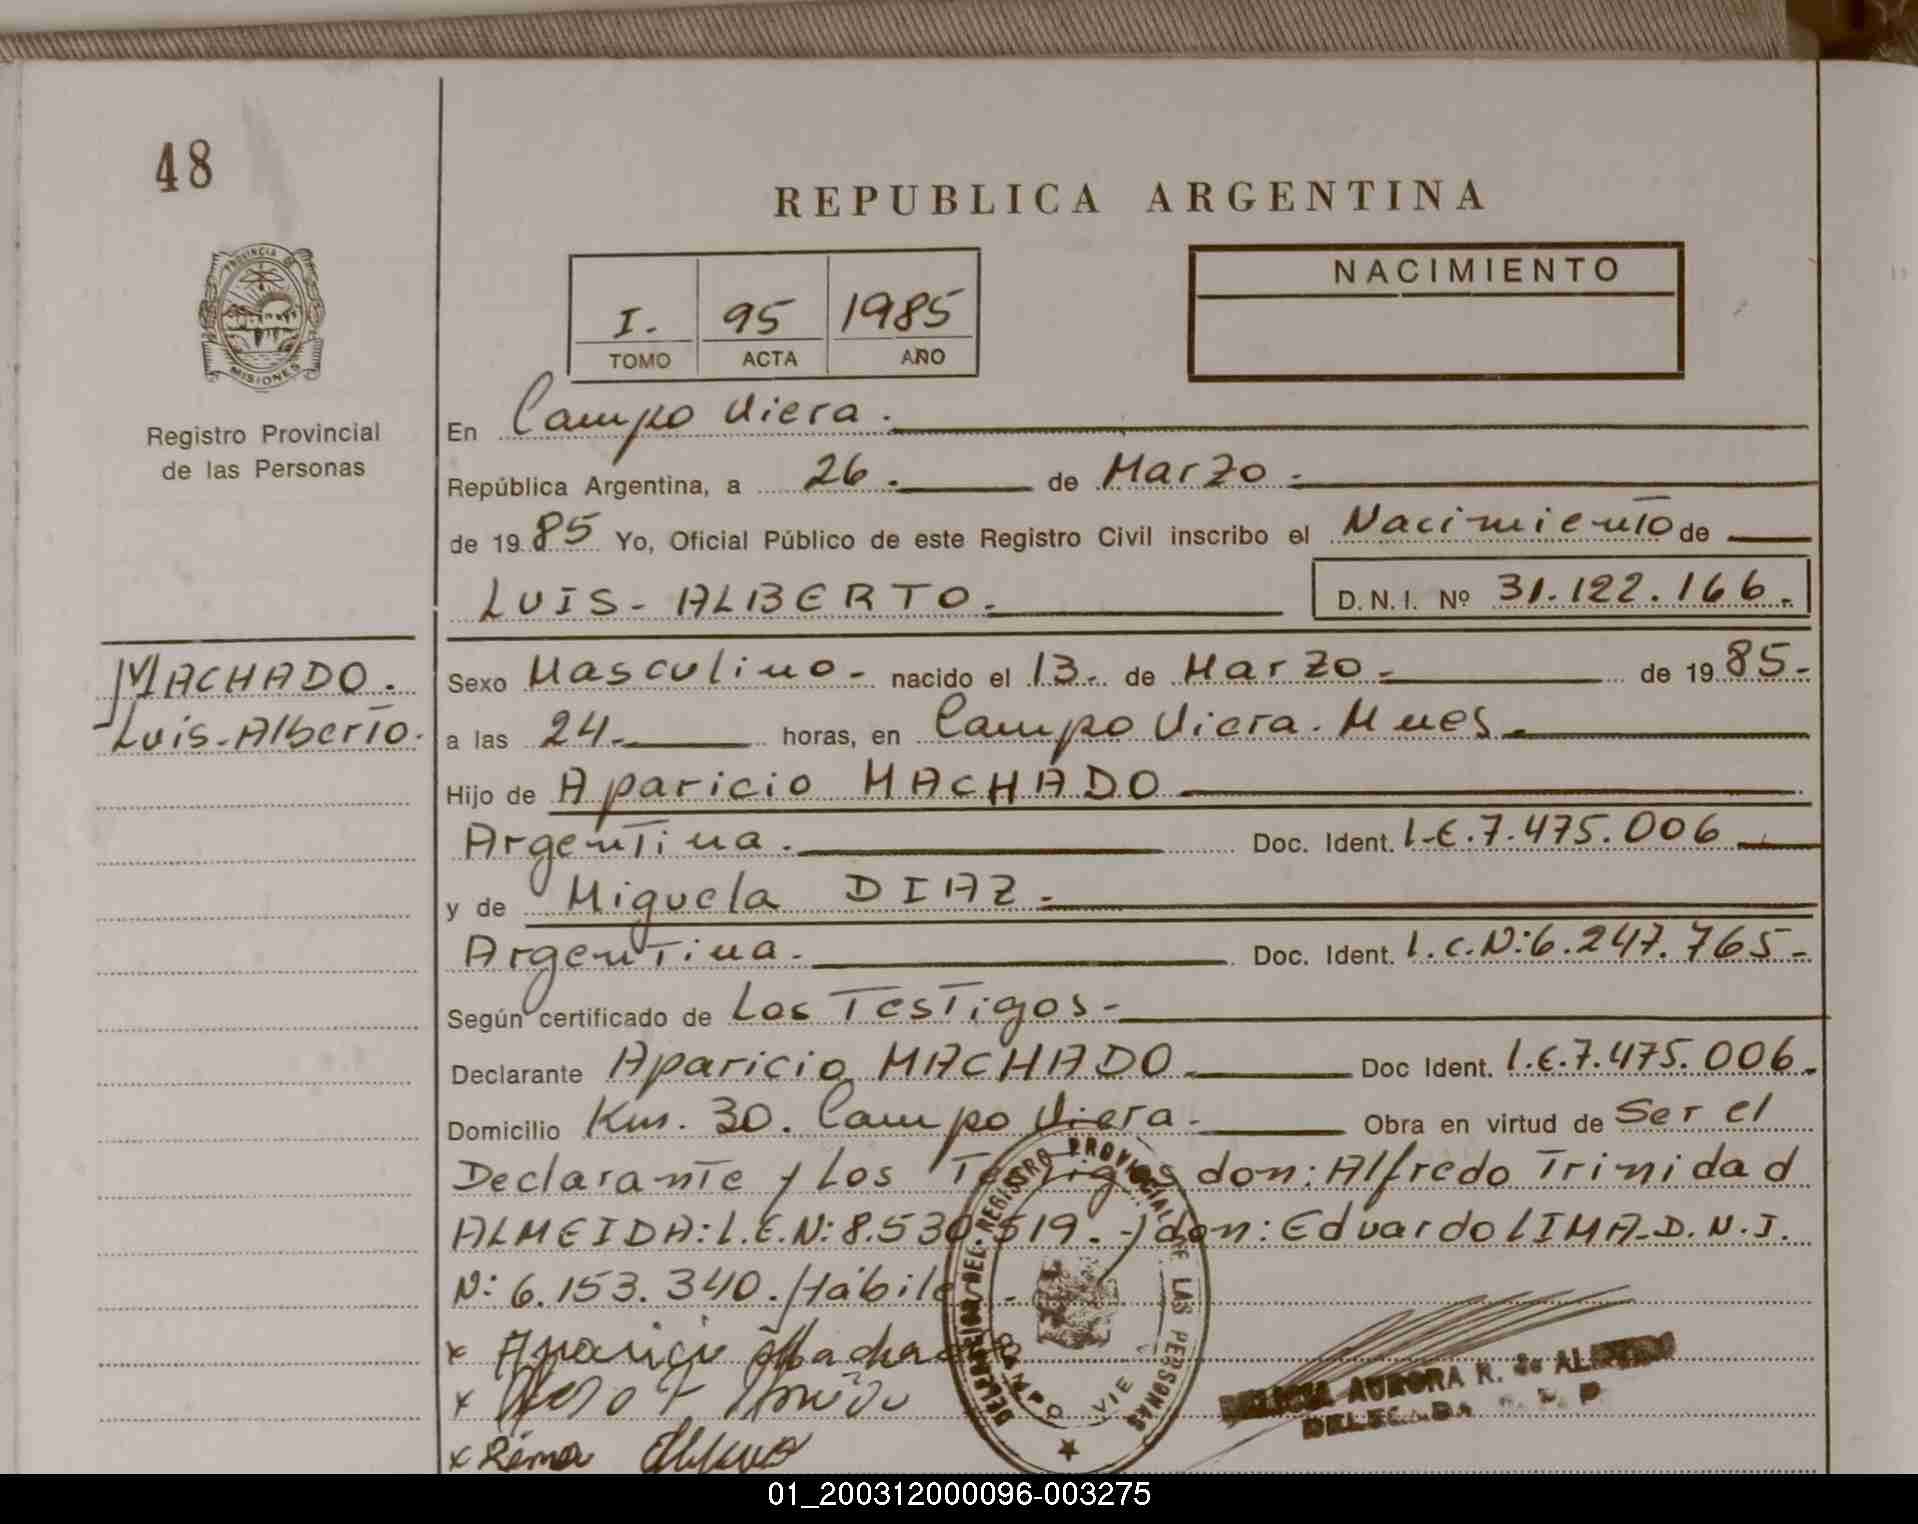 48
REPUBLICA ARGENTINA
PROVINCIA DE
MISIONES
I. 95 1985
TOMO ACTA AÑO
NACIMIENTO
Registro Provincial
de las Personas
En Campo Viera.
República Argentina, a 26. de Marzo.
de 1985 Yo, Oficial Público de este Registro Civil inscribo el Nacimiento de
LUIS-ALBERTO. D.N.I. Nº 31.122.166.
MACHADO.
Luis-Alberto.
Sexo Masculino- nacido el 13. de Marzo- de 1985-
a las 24. horas, en Campo Viera. Mnes.
Hijo de Aparicio MACHADO
Argentina. Doc. Ident. L.E.7.475.006
y de Miguela DIAZ.
Argentina. Doc. Ident. L.C.N:6.247.765-
Según certificado de Los Testigos-
Declarante Aparicio MACHADO Doc Ident. L.E.7.475.006.
Domicilio Km. 30. Campo Viera. Obra en virtud de Ser el
Declarante y Los Testigos don: Alfredo Trinidad
ALMEIDA: L.E.N: 8.530.519.- y don: Eduardo LIMA-D.N.I.
N: 6.153.340. Hábiles.
x Aparicio Machado
x
x
DELEGACION DEL REGISTRO PROVINCIAL DE LAS PERSONAS
CAMPO VIE
AURORA R. de
DELEGADA
01_200312000096-003275